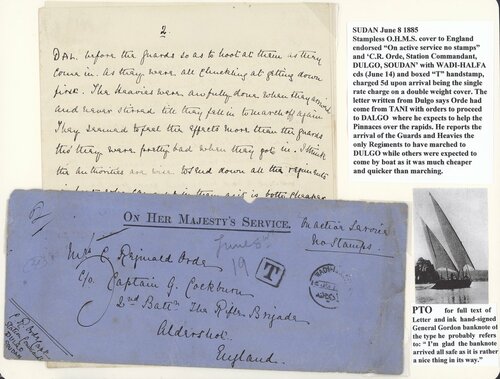 2.
DAL. before the guards so as to hoot at them as they
come in. As they were all chuckling at getting down
first. The Heavies were awfully done when they arrived
and never stirred till they fell in to march off again
They seemed to feel the effects more than the guards
tho' they were pretty bad when they got in. I think
the authorities are wise to send down all the regiments
SUDAN June 8 1885
Stampless O.H.M.S. cover to England
endorsed "On active service no stamps"
and 'C.R. Orde, Station Commandant,
DULGO, SOUDAN' with WADI-HALFA
cds (June 14) and boxed "T" handstamp,
charged 5d upon arrival being the single
rate charge on a double weight cover. The
letter written from Dulgo says Orde had
come from TANI with orders to proceed
to DALGO where he expects to help the
Pinnaces over the rapids. He reports the
arrival of the Guards and Heavies the
only Regiments to have marched to
DULGO while others were expected to
come by boat as it was much cheaper
and quicker than marching.
ON HER MAJESTY'S SERVICE.
On active Service
No Stamps
June 8th
19
T
Mrs C Reginald Orde
c/o Captain G. Cockburn
2nd Battn The Rifle Brigade
Aldershot
England
PTO for full text of
Letter and ink hand-signed
General Gordon banknote of
the type he probably refers
to: "I'm glad the banknote
arrived all safe as it is rather
a nice thing in its way."